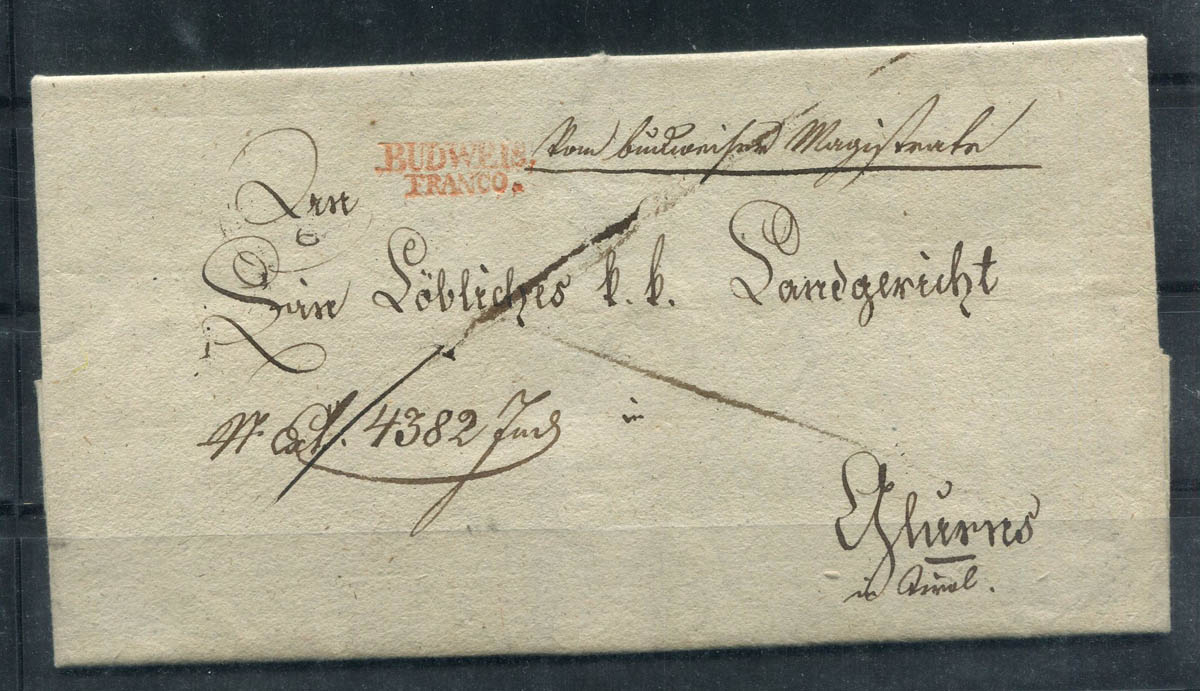 Vom budweiser Magistrate
BUDWEIS.
FRANCO.
An
Ein Löbliches k. k. Landgericht
4382 Jud
in
Glurns
in Tirol.